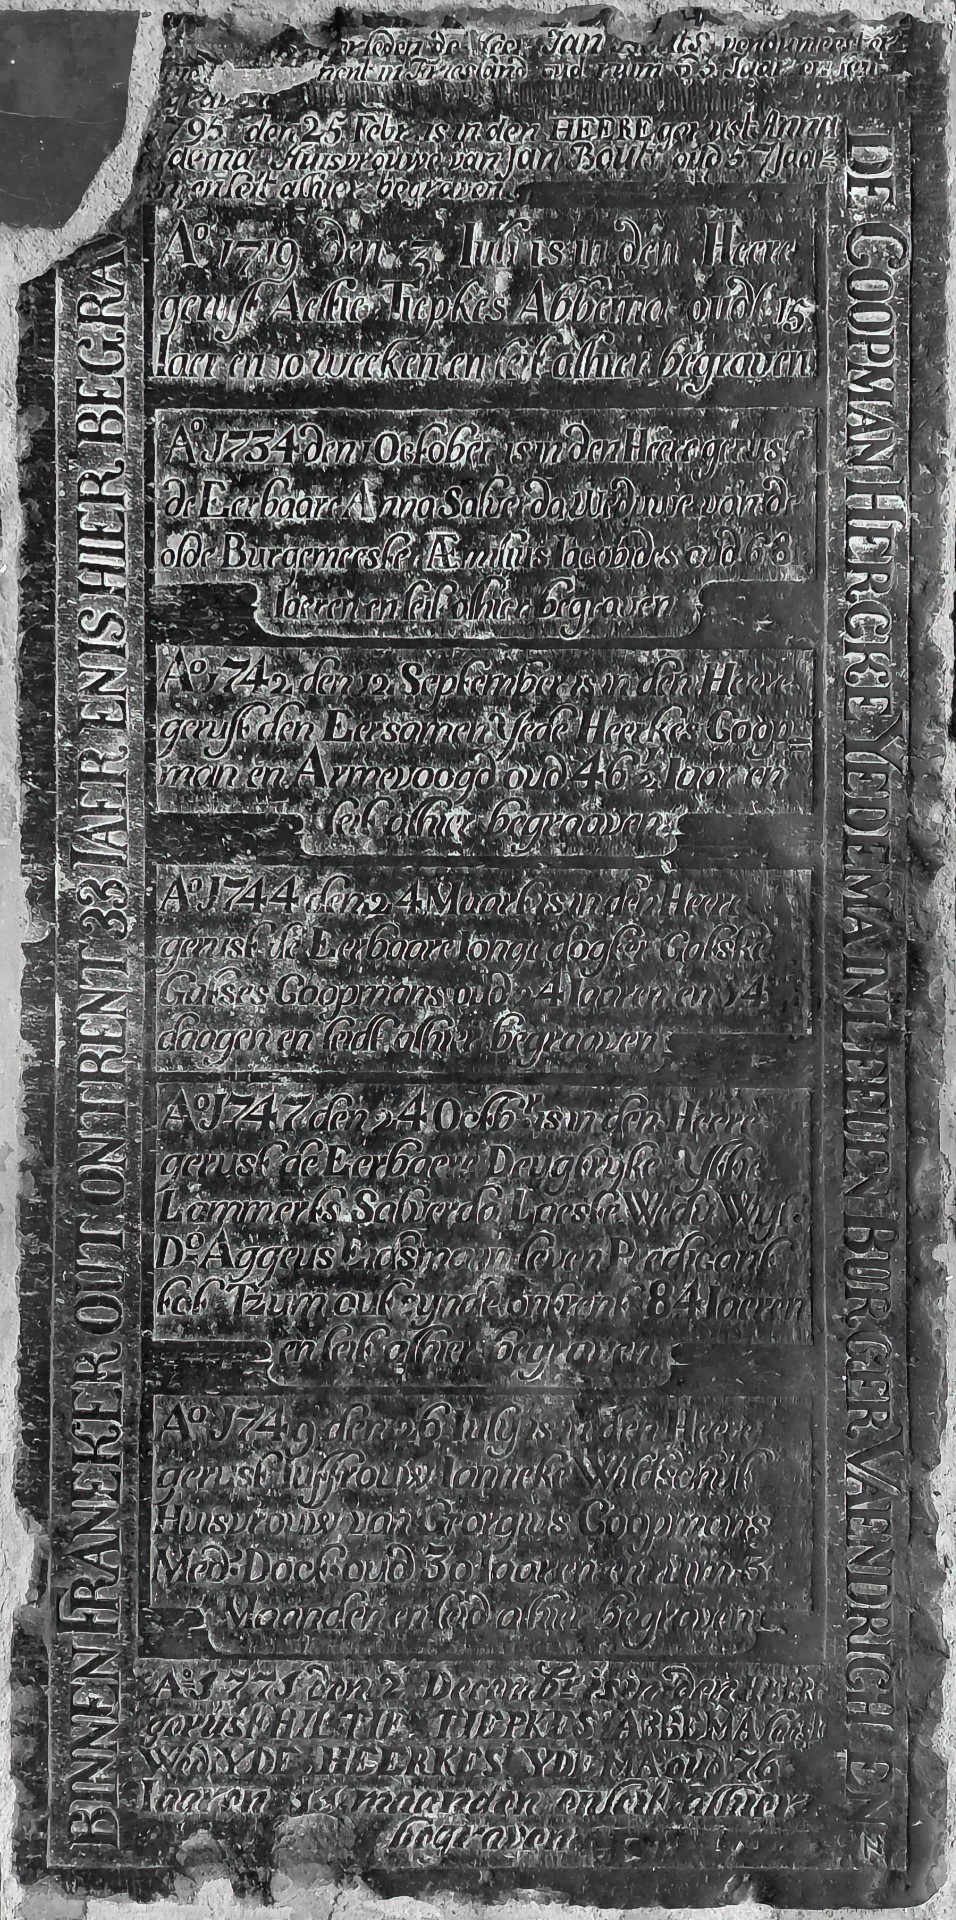 orleden de Heer Jan vendumeester
nent in Friesland oud ruim 65 Jaar
grave
795 den 25 Febr. is in den HEERE gerust Anna
dema Huisvrouwe van Jan Bouts oud 57 Jaar
en leit alhier begraven
Ao 1719 den 3 Iuli is in den Heere
gerust Aeltie Tiepkes Abbema oudt 15
Iaer en 10 weeken en leit alhier begraven
Ao 1734 den 1 October is in den Heere gerust
de Eerbaare Anna Salverda Weduwe van de
olde Burgemeester Æmilius Iacobides oud 68
Iaeren en leit alhier begraven
Ao 1742 den 12 September is in den Heere
gerust den Eersamen Yede Heerkes Coop
man en Armevoogd oud 46 ½ Iaar en
leit alhier begraaven
Ao 1744 den 24 Maart is in den Heere
gerust de Eerbaare Ionge dogter Gatske
Gatses Coopmans oud 24 Iaaren en 14
daagen en leidt alhier begraaven
Ao 1747 den 24 Octbr is in den Heere
gerust de Eerbaere Deugtryke Ytie
Lammerts Salverda Laeste Wedu Wyl:
Do Aggeus Erasmi in leven Predicant
tot Tzum out zynde ontrent 84 Iaeren
en leit alhier begraven
Ao 1749 den 26 Iuly is in den Heere
gerust Iuffrouw Ianneke Wildschut
Huisvrouw van Georgius Coopmans
Med: Doct oud 30 Iaaren en ruim 3
Maanden en leid alhier begraven
Ao 1771 den 2 Decembr is in den HEER
gerust HILTIE TIEPKES ABBEMA laest
Wed YDE HEERKES YDEMA oud 76
Iaaren maanden en leit alhier
begraven
DE COOPMAN HIERCKE YEDEMA IN LEEUEN BURGER VAENDRICH EN
BINNEN FRANEKER OUT ONTRENT 33 IAER EN IS HIER BEGRA